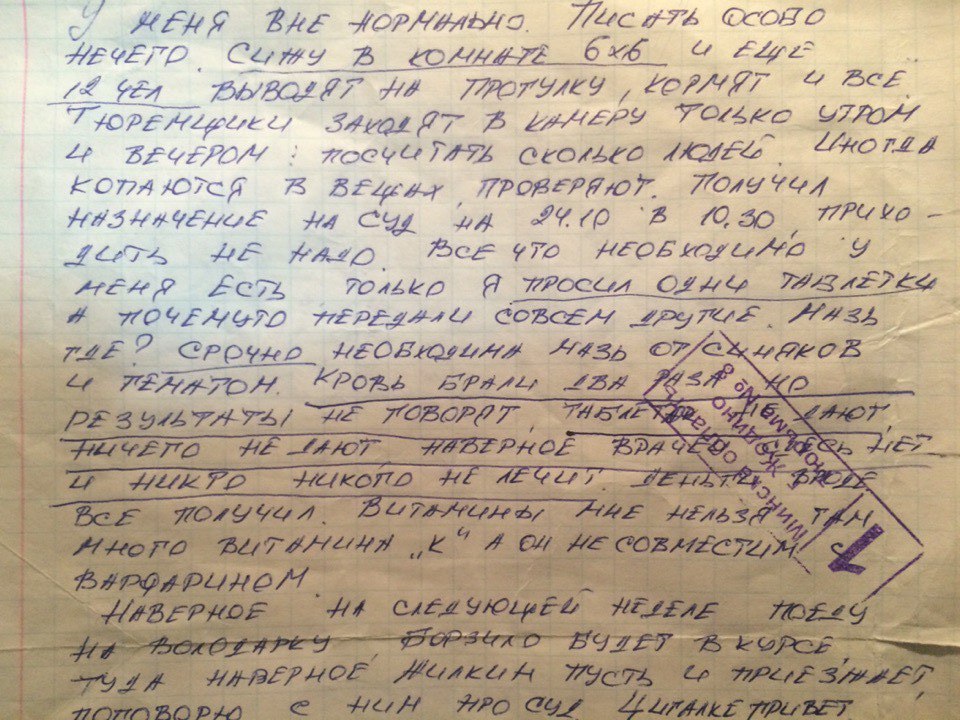 У МЕНЯ ВНЕ НОРМАЛЬНО. ПИСАТЬ ОСОБО
НЕЧЕГО. СИЖУ В КОМНАТЕ 6х6 И ЕЩЕ
12 ЧЕЛ ВЫВОДЯТ НА ПРОГУЛКУ, КОРМЯТ И ВСЕ.
ТЮРЕМЩИКИ ЗАХОДЯТ В КАМЕРУ ТОЛЬКО УТРОМ
И ВЕЧЕРОМ: ПОСЧИТАТЬ СКОЛЬКО ЛЮДЕЙ. ИНОГДА
КОПАЮТСЯ В ВЕЩАХ, ПРОВЕРЯЮТ. ПОЛУЧИЛ
НАЗНАЧЕНИЕ НА СУД НА 24.10 В 10.30, ПРИХО-
ДИТЬ НЕ НАДО. ВСЕ ЧТО НЕОБХОДИМО У
МЕНЯ ЕСТЬ ТОЛЬКО Я ПРОСИЛ ОДНИ ТАБЛЕТКИ
А ПОЧЕМУТО ПЕРЕДАЛИ СОВСЕМ ДРУГИЕ. МАЗЬ
ГДЕ? СРОЧНО НЕОБХОДИМА МАЗЬ ОТ СИНЯКОВ
И ГЕМАТОМ. КРОВЬ БРАЛИ ДВА РАЗА НО
РЕЗУЛЬТАТЫ НЕ ГОВОРЯТ, ТАБЛЕТКИ НЕ ДАЮТ,
НИЧЕГО НЕ ДАЮТ, НАВЕРНОЕ ВРАЧЕЙ ЗДЕСЬ НЕТ
И НИКТО НИКОГО НЕ ЛЕЧИТ. ДЕНЬГИ ВРОДЕ
ВСЕ ПОЛУЧИЛ. ВИТАМИНЫ МНЕ НЕЛЬЗЯ ТАМ
МНОГО ВИТАМИНА „К" А ОН НЕ СОВМЕСТИМ С
ВАРФАРИНОМ.
НАВЕРНОЕ НА СЛЕДУЮЩЕЙ НЕДЕЛЕ ПОЕДУ
НА ВОЛОДАРКУ, БОРЗИЛО БУДЕТ В КУРСЕ,
ТУДА НАВЕРНОЕ ЖИЛКИН ПУСТЬ И ПРИЕЗЖАЕТ,
ПОГОВОРЮ С НИМ ПРО СУД. ЦИГАЛКЕ ПРИВЕТ
г. Жодино
Тюрьма № 8
1